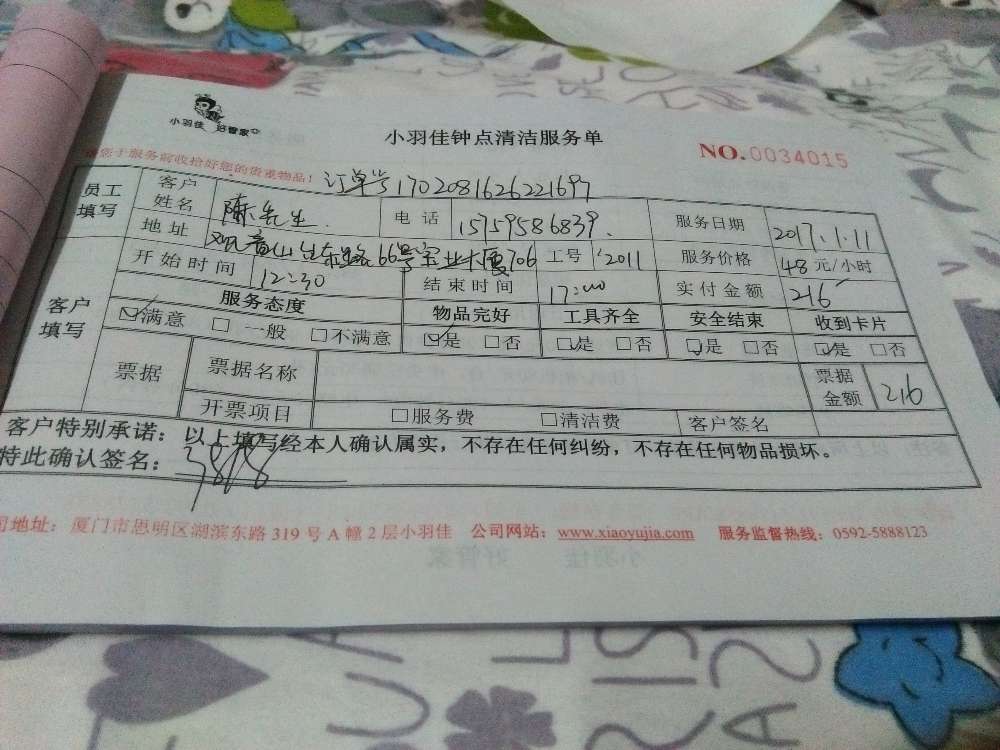 小羽佳 好管家
小羽佳钟点清洁服务单
NO.0034015
您于服务前收拾好您的贵重物品!
订单号1702081626221697
员工填写 客户姓名 陈先生 电话 15759586839 服务日期 2017.1.11
地址 观音山 66号 大厦706 工号 2011 服务价格 48元/小时
客户填写 开始时间 12:30 结束时间 17:00 实付金额 216
服务态度 物品完好 工具齐全 安全结束 收到卡片
☑满意 □一般 □不满意 ☑是 □否 ☑是 □否 ☑是 □否 ☑是 □否
票据 票据名称 票据金额 216
开票项目 □服务费 □清洁费 客户签名
客户特别承诺:以上填写经本人确认属实,不存在任何纠纷,不存在任何物品损坏。
特此确认签名:
司地址:厦门市思明区湖滨东路319号A幢2层小羽佳 公司网站:www.xiaoyujia.com 服务监督热线:0592-5888123